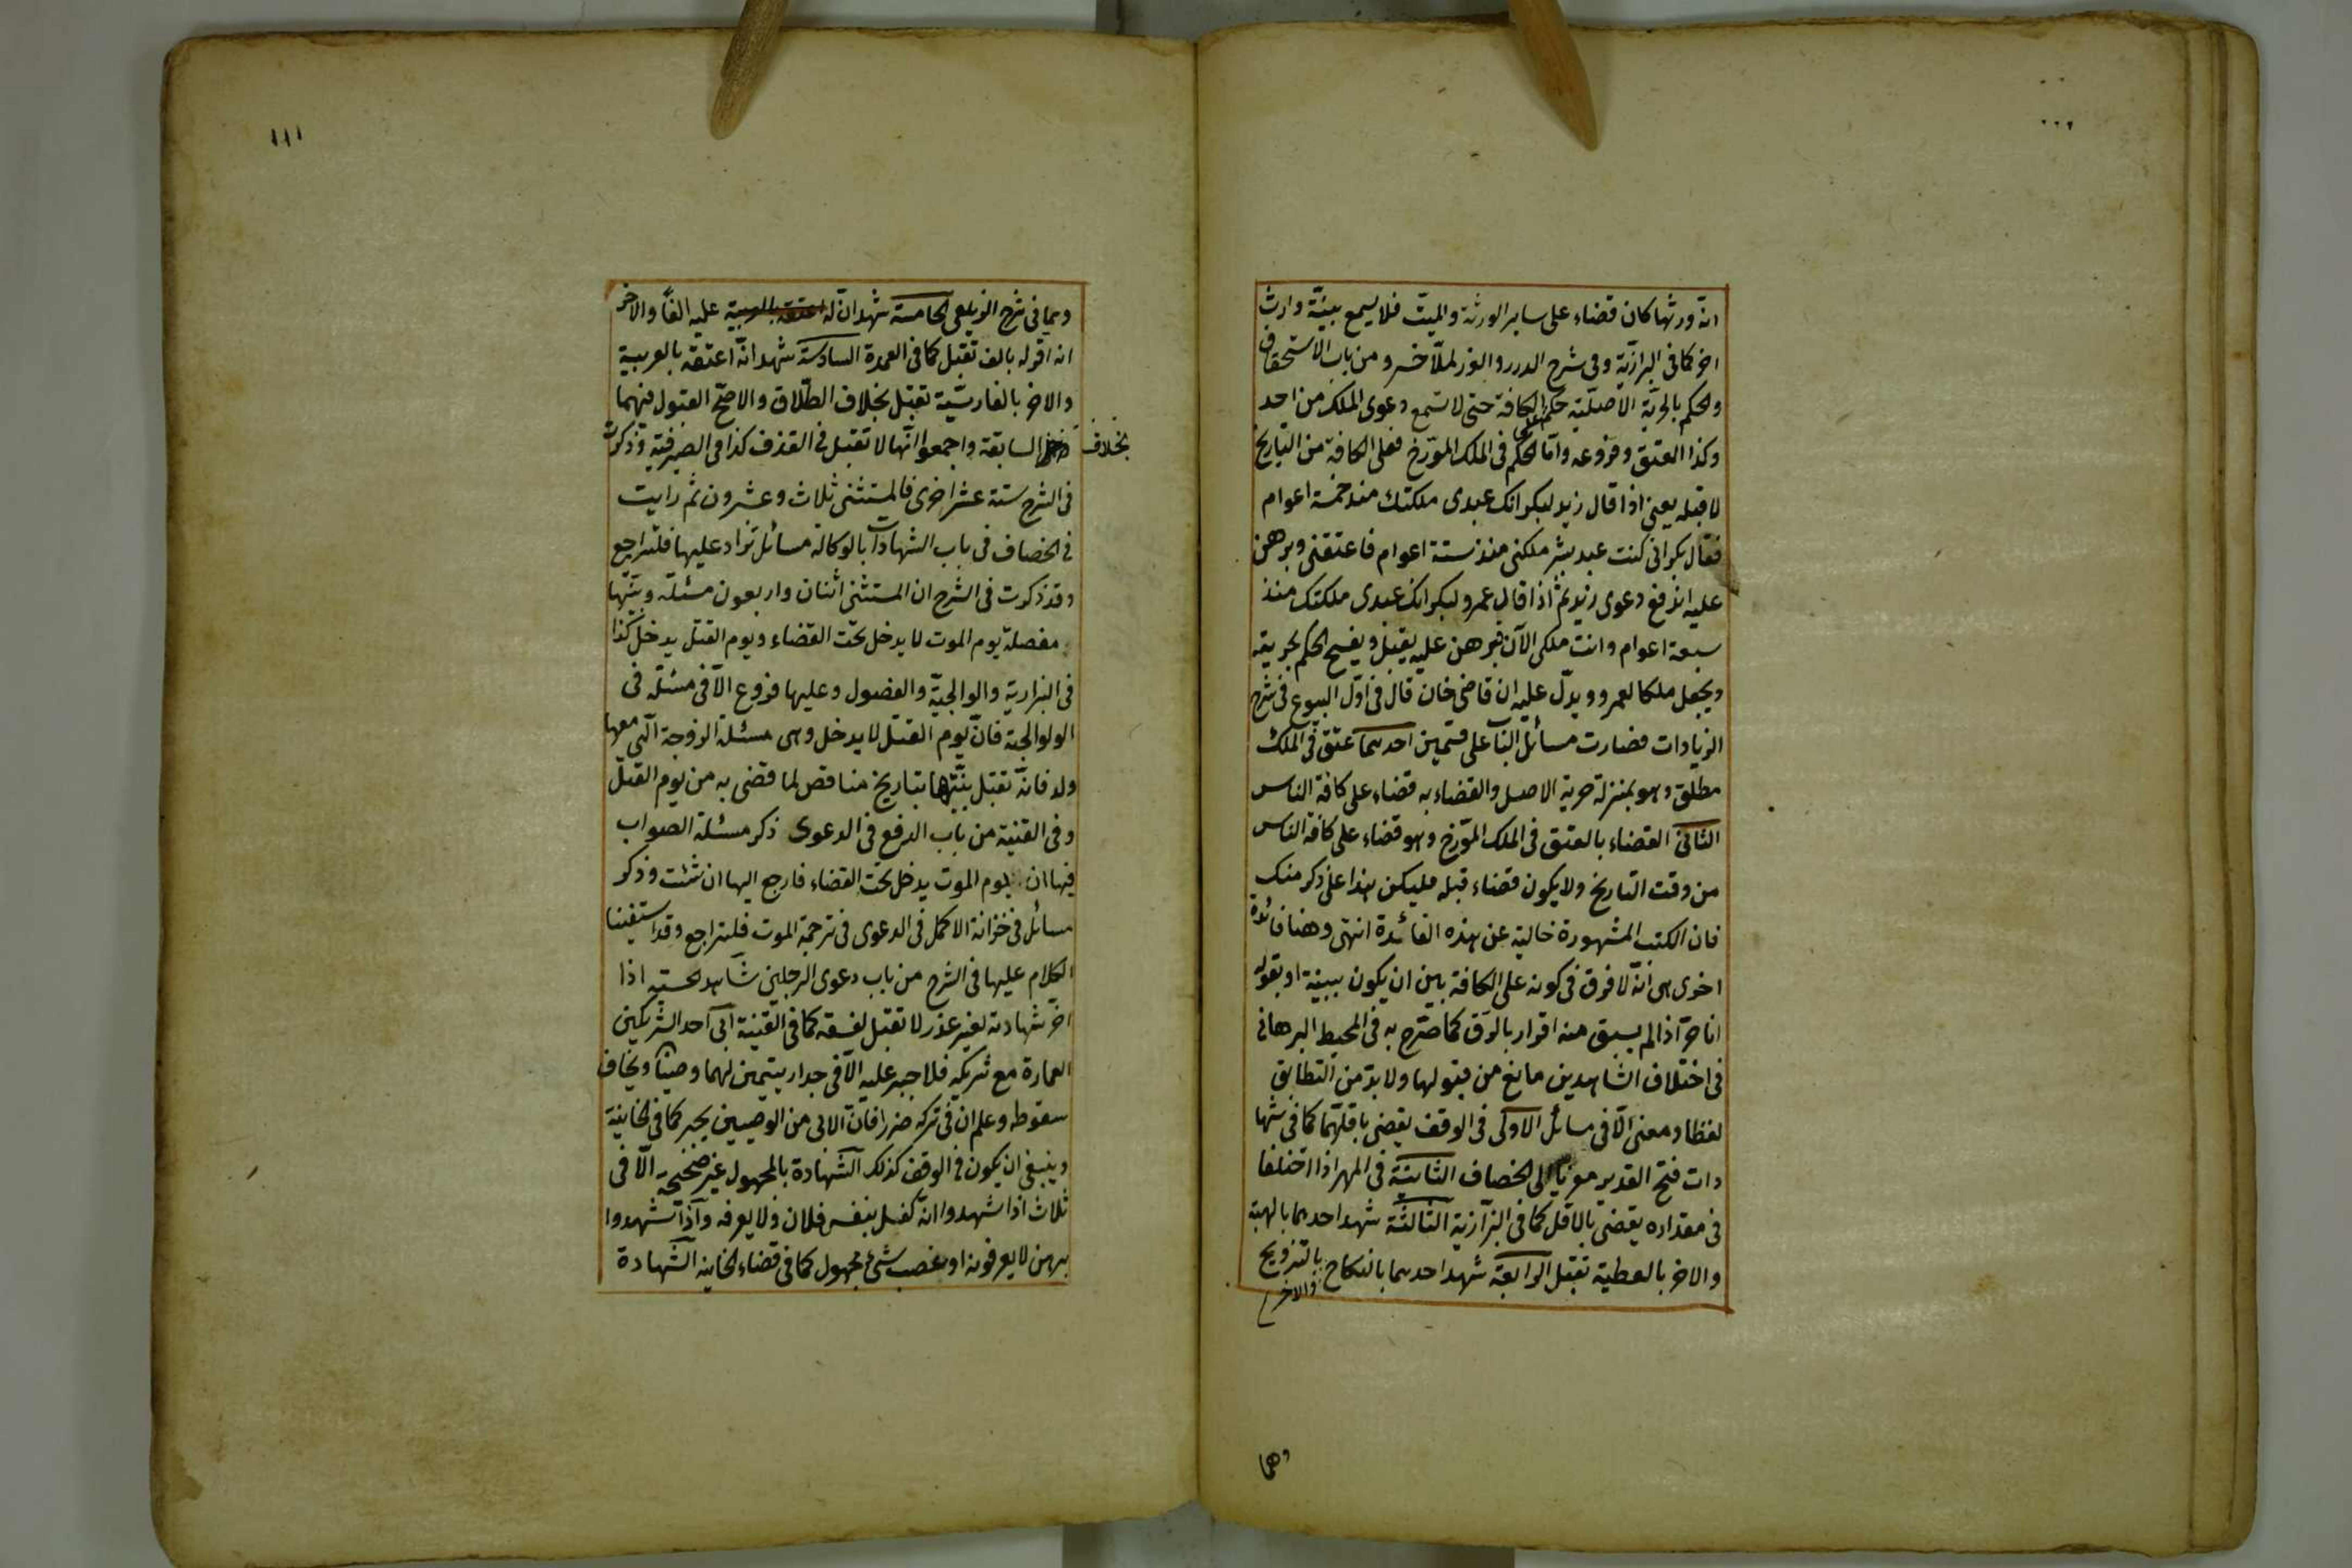 انه ورثها كان قضاء على ساير الورثة والميت فلا يسمع بينة وارث
اخر كما فى البزازية وفى شرح الدرر والغرر لملا خسرو من باب الاستحقاق
والحكم بالحرية الاصلية حكم على الكافة حتى لا تسمع دعوى الملك من احد
وكذا العتق وفروعه واما الحكم فى الملك المؤرخ فعلى الكافة من التاريخ
لا قبله يعنى اذا قال زيد لبكر انك عبدى ملكتك منذ خمسة اعوام
فقال بكر انى كنت عبد بشر ملكنى منذ ستة اعوام فاعتقنى وبرهن
عليه اندفع دعوى زيد ثم اذا قال عمرو لبكر انك عبدى ملكتك منذ
سبعة اعوام وانت ملكى الآن فبرهن عليه يقبل ويفسخ الحكم بحريته
ويجعل ملكا لعمرو ويدل عليه ان قاضى خان قال فى اول البيوع فى شرح
الزيادات فصارت مسائل الباب على قسمين احدهما عتق فى الملك
مطلق وهو بمنزلة حرية الاصل والقضاء به قضاء على كافة الناس
الثانى القضاء بالعتق فى الملك المؤرخ وهو قضاء على كافة الناس
من وقت التاريخ ولا يكون قضاء قبله فليكن هذا على ذكر منك
فان الكتب المشهورة خالية عن هذه الفائدة انتهى وهنا فائدة
اخرى هى انه لا فرق فى كونه على الكافة بين ان يكون ببينة او بقوله
انا حر اذا لم يسبق منه اقرار بالرق كما صرح به فى المحيط البرهانى
فى اختلاف الشاهدين مانع من قبولها ولا بد من التطابق
لفظا ومعنى الا فى مسائل الاولى فى الوقف يقضى باقلهما كما فى شها
دات فتح القدير معزيا الى الخصاف الثانية فى المهر اذا اختلفا
فى مقداره يقضى بالاقل كما فى البزازية الثالثة شهد احدهما بالهبة
والاخر بالعطية تقبل الرابعة شهد احدهما بالنكاح والاخر بالتزويج
وهما
١١١
وهما فى شرح الزيلعى الخامسة شهد ان له عليه الفا والاخر
انه اقر له بالف تقبل كما فى العمدة السادسة شهد انه اعتقه بالعربية
والاخر بالفارسية تقبل بخلاف الطلاق والاصح القبول فيهما
بخلاف السابقة واجمعوا انها لا تقبل فى القذف كذا فى الصيرفية وذكرت
فى الشرح ستة عشر اخرى فالمستثنى ثلاث وعشرون ثم رايت
فى الخصاف فى باب الشهادات بالوكالة مسائل تزاد عليها فلتراجع
وقد ذكرت فى الشرح ان المستثنى اثنان واربعون مسئلة وبينتها
مفصلة يوم الموت لا يدخل تحت القضاء ويوم القتل يدخل كذا
فى البزازية والوالجية والفصول وعليها فروع الا فى مسئلة فى
الولوالجية فان يوم القتل لا يدخل وهى مسئلة الزوجة التى معها
ولد فانه تقبل بينتها بتاريخ مناقض لما قضى به من يوم القتل
وفى القنية من باب الدفع فى الدعوى ذكر مسئلة الصواب
فيها ان يوم الموت يدخل تحت القضاء فارجع اليها ان شئت وذكر
مسائل فى خزانة الاكمل فى الدعوى فى ترجمة الموت فلتراجع وقد استفينا
الكلام عليها فى الشرح من باب دعوى الرجلين شاهد الحسبة اذا
اخر شهادته لغير عذر لا تقبل لفسقه كما فى القنية ابى احد الشريكين
العمارة مع شريكه فلا جبر عليه الا فى جدار يتيمين لهما وصيان ويخاف
سقوطه وعلم ان فى تركه ضررا فان الابى من الوصيين يجبر كما فى الخانية
وينبغى ان يكون فى الوقف كذلك الشهادة بالمجهول غير صحيحة الا فى
ثلاث اذا شهدوا انه كفل بنفس فلان ولا يعرفه واذا شهدوا
برهن لا يعرفونه او بغصب شئ مجهول كما فى قضاء الخانية الشهادة